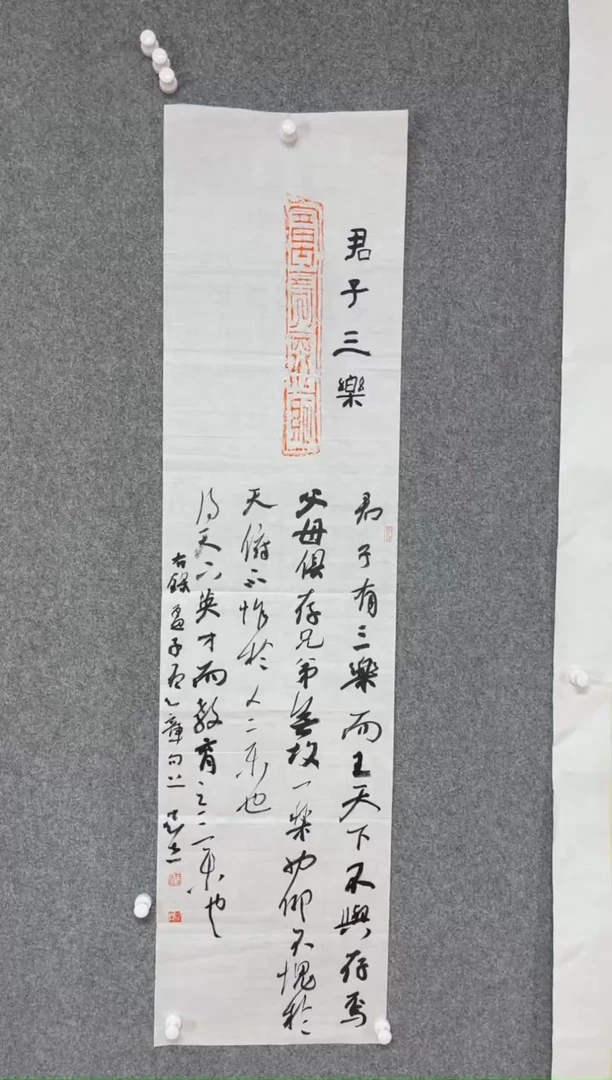 君子三樂
君子有三樂而王天下不與存焉
父母俱存兄弟無故一樂也仰不愧於
天俯不怍於人二乐也
得天下英才而教育之三乐也
右錄孟子尽心章句上